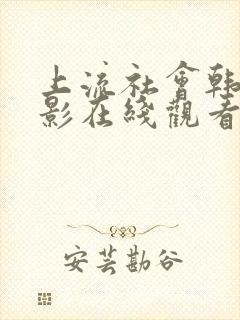 上流社會韩
影在綫觀看
安芸勘谷